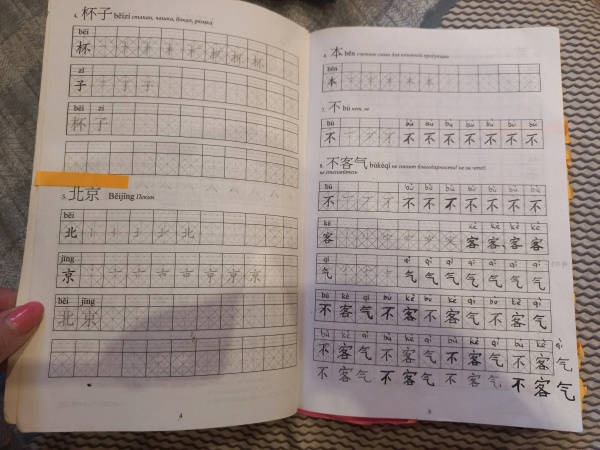 4. 杯子 bēizi стакан, чашка, бокал, рюмка
bēi
杯
zi
子
bēi zi
杯 子
5. 北京 Běijīng Пекин
běi
北
jīng
京
běi jīng
北 京
4
6. 本 běn счетное слово для книжной продукции
běn
本
7. 不 bù нет, не
bù bù bù bù bù bù bù bù
不 不 不 不 不 不 不 不
8. 不客气 búkèqi не стоит благодарности! не за что!;
не стесняйтесь
bù bù bù bù bù bù bù bù
不 不 不 不 不 不 不 不
kè kè kè kè kè
客 客 客 客 客
qì qì qì qì qì qì qì qì
气 气 气 气 气 气 气 气
bù kè qì bù kè bù kè qì bù kè qì
不 客 气 不 客 不 客 气 不 客 气
bù kè qì bù kè qì bù kè qì bù kè qì
不 客 气 不 客 气 不 客 气 不 客 气
不 客 气 不 客 气 不 客 气 不 客 气